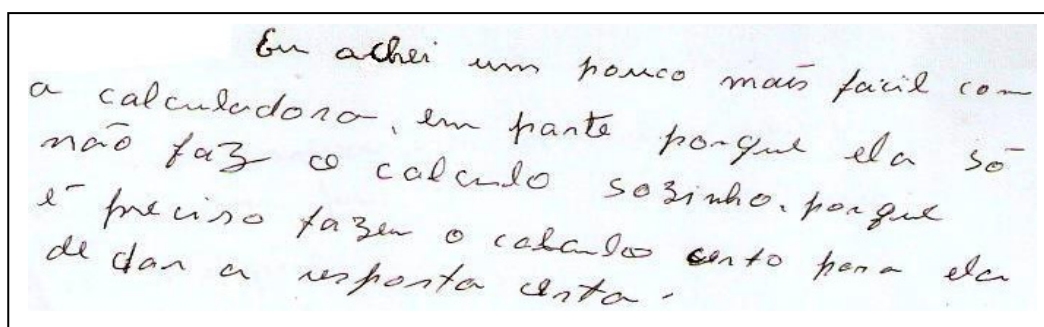 Eu achei um pouco mais fácil com
a calculadora, em parte porque ela só
não faz o calculo sozinho, porque
é preciso fazer o calculo certo para ela
de dar a resposta certa.